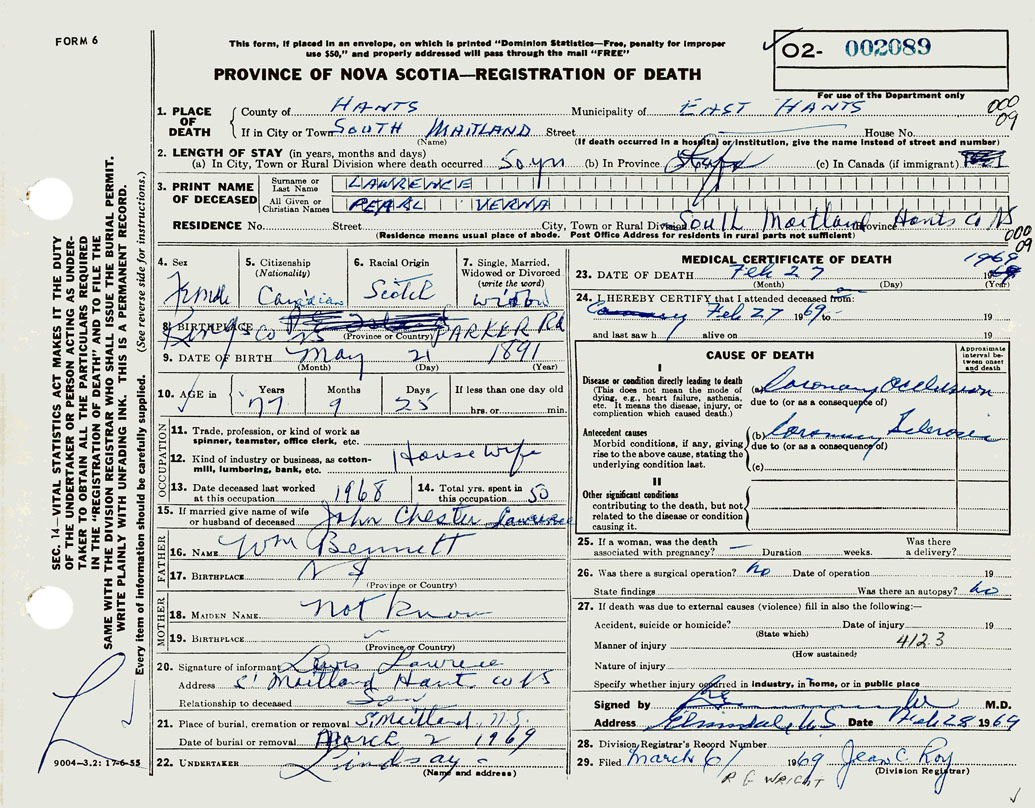 FORM 6
This form, if placed in an envelope, on which is printed "Dominion Statistics—Free, penalty for improper
use $50," and properly addressed will pass through the mail "FREE"
O2- 002089
PROVINCE OF NOVA SCOTIA—REGISTRATION OF DEATH
For use of the Department only
1. PLACE OF DEATH County of HANTS Municipality of EAST HANTS 000 09
If in City or Town SOUTH MAITLAND Street House No.
(Name) (If death occurred in a hospital or institution, give the name instead of street and number)
2. LENGTH OF STAY (in years, months and days)
(a) In City, Town or Rural Division where death occurred 50 yrs (b) In Province (c) In Canada (if immigrant)
3. PRINT NAME OF DECEASED Surname or Last Name LAWRENCE
All Given or Christian Names PEARL VERNA
RESIDENCE No. Street City, Town or Rural Division South Maitland Province Hants Co NS 000 09
(Residence means usual place of abode. Post Office Address for residents in rural parts not sufficient)
4. Sex Female
5. Citizenship (Nationality) Canadian
6. Racial Origin Scotch
7. Single, Married, Widowed or Divorced (write the word) widow
8. BIRTHPLACE Kings Co NS PARKER Rd
(Province or Country)
9. DATE OF BIRTH May 21 1891
(Month) (Day) (Year)
10. AGE in Years Months Days If less than one day old
77 9 25 hrs. or min.
OCCUPATION
11. Trade, profession, or kind of work as spinner, teamster, office clerk, etc.
12. Kind of industry or business, as cotton-mill, lumbering, bank, etc. Housewife
13. Date deceased last worked at this occupation 1968
14. Total yrs. spent in this occupation 50
15. If married give name of wife or husband of deceased John Chester Lawrence
FATHER
16. NAME Wm Bennett
17. BIRTHPLACE N S
(Province or Country)
MOTHER
18. MAIDEN NAME not know
19. BIRTHPLACE
(Province or Country)
20. Signature of informant Lewis Lawrence
Address S. Maitland Hants Co NS
Relationship to deceased Son
21. Place of burial, cremation or removal S. Maitland, N.S.
Date of burial or removal March 2 1969
22. UNDERTAKER Lindsay
(Name and address)
MEDICAL CERTIFICATE OF DEATH
23. DATE OF DEATH Feb 27 1969
(Month) (Day) (Year)
24. I HEREBY CERTIFY that I attended deceased from:
Feb 27 1969 to 19
and last saw h alive on 19
CAUSE OF DEATH
Approximate interval between onset and death
I
Disease or condition directly leading to death
(This does not mean the mode of dying, e.g., heart failure, asthenia, etc. It means the disease, injury, or complication which caused death.)
(a) Coronary Occlusion
due to (or as a consequence of)
Antecedent causes
Morbid conditions, if any, giving rise to the above cause, stating the underlying condition last.
(b) Coronary Sclerosis
due to (or as a consequence of)
(c)
II
Other significant conditions
contributing to the death, but not related to the disease or condition causing it.
25. If a woman, was the death associated with pregnancy? — Duration weeks. Was there a delivery?
26. Was there a surgical operation? no Date of operation 19
State findings Was there an autopsy? no
27. If death was due to external causes (violence) fill in also the following:—
Accident, suicide or homicide? Date of injury 19
(State which)
Manner of injury 412.3
(How sustained)
Nature of injury
Specify whether injury occurred in industry, in home, or in public place
Signed by M.D.
Address Elmsdale, N.S. Date Feb 28 1969
28. Division Registrar's Record Number
29. Filed March 6/ 1969 Jean C. Roy
(Division Registrar)
R G WRIGHT
SEC. 14—VITAL STATISTICS ACT MAKES IT THE DUTY
OF THE UNDERTAKER OR PERSON ACTING AS UNDER-
TAKER TO OBTAIN ALL THE PARTICULARS REQUIRED
IN THE "REGISTRATION OF DEATH" AND TO FILE THE
SAME WITH THE DIVISION REGISTRAR WHO SHALL ISSUE THE BURIAL PERMIT.
WRITE PLAINLY WITH UNFADING INK. THIS IS A PERMANENT RECORD.
Every item of information should be carefully supplied. (See reverse side for instructions.)
9004—3.2: 17-6-55